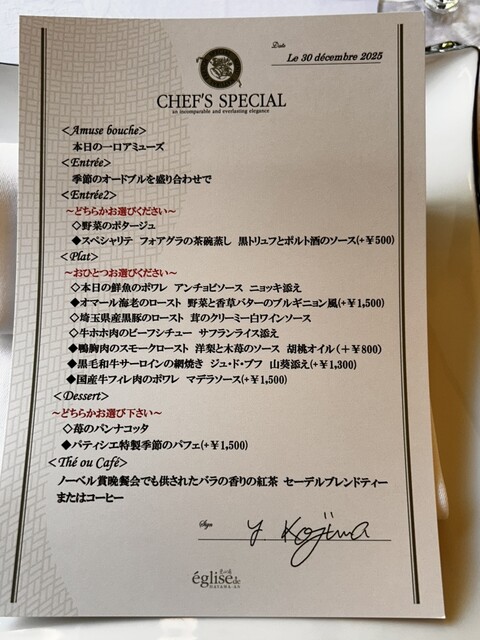 Date
Le 30 décembre 2025
CHEF'S SPECIAL
an incomparable and everlasting elegance
<Amuse bouche>
本日の一口アミューズ
<Entrée>
季節のオードブルを盛り合わせで
<Entrée2>
～どちらかお選びください～
◇野菜のポタージュ
◆スペシャリテ フォアグラの茶碗蒸し 黒トリュフとポルト酒のソース(+￥500)
<Plat>
～おひとつお選びください～
◇本日の鮮魚のポワレ アンチョビソース ニョッキ添え
◆オマール海老のロースト 野菜と香草バターのブルギニョン風(+￥1,500)
◇埼玉県産黒豚のロースト 茸のクリーミー白ワインソース
◇牛ホホ肉のビーフシチュー サフランライス添え
◆鴨胸肉のスモークロースト 洋梨と木苺のソース 胡桃オイル（＋￥800）
◆黒毛和牛サーロインの網焼き ジュ・ド・ブフ 山葵添え(+￥1,300)
◆国産牛フィレ肉のポワレ マデラソース(+￥1,500)
<Dessert>
～どちらかお選び下さい～
◇苺のパンナコッタ
◆パティシエ特製季節のパフェ(+￥1,500)
<Thé ou Café>
ノーベル賞晩餐会でも供されたバラの香りの紅茶 セーデルブレンドティー
またはコーヒー
Sign
Y Kojima
église de